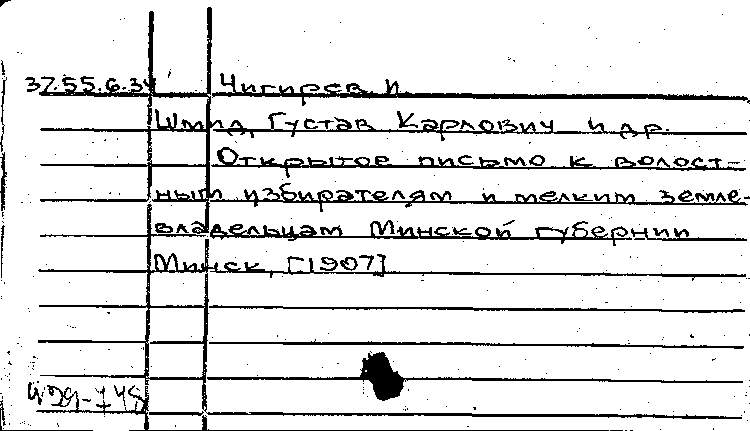 37.55.6.34 Чигирев И.
Шмид, Густав Карлович и др.
Открытое письмо к волост-
ным избирателям и мелким земле-
владельцам Минской губернии
Минск, [1907]